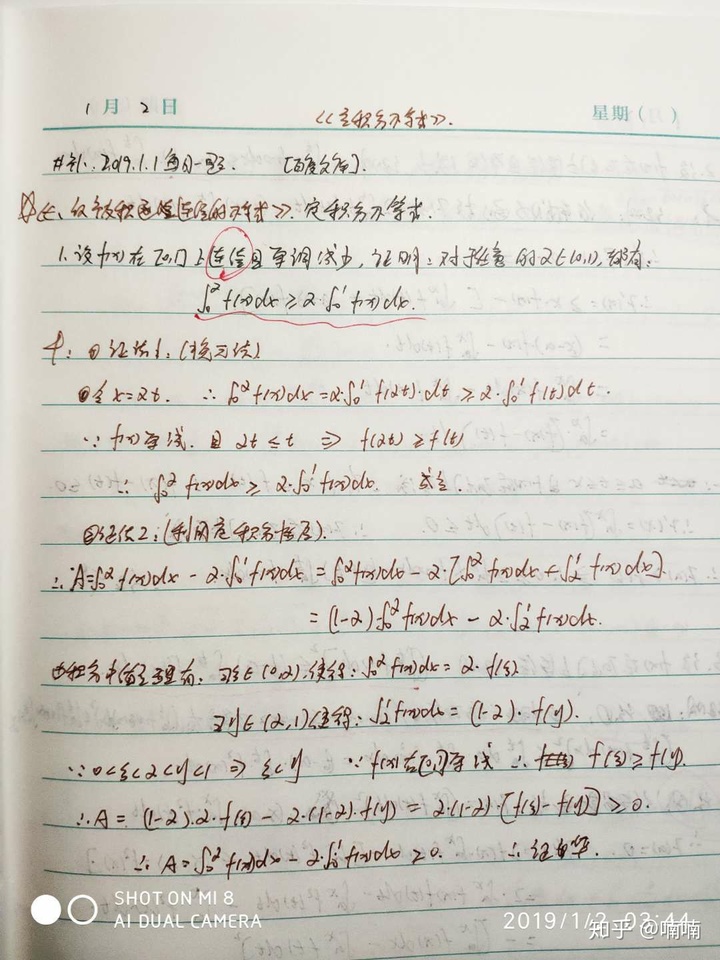 1月2日 《定积分不等式》. 星期( )
补: 2019.1.1每日一题. [百度文库].
仅知被积函数连续的不等式》. 定积分不等式.
1. 设f(x)在[0,1]上连续且单调减少, 证明: 对于任意的α∈(0,1), 都有:
∫₀^α f(x)dx ≥ α·∫₀¹ f(x)dx.
①证法1: (换元法)
①令x=αt. ∴ ∫₀^α f(x)dx = α·∫₀¹ f(αt)·dt ≥ α·∫₀¹ f(t)dt.
∵ f(x)单减. 且 αt ≤ t ⇒ f(αt) ≥ f(t)
∴ ∫₀^α f(x)dx ≥ α·∫₀¹ f(x)dx. 成立.
②证法2: (利用定积分性质).
∴ A=∫₀^α f(x)dx - α·∫₀¹ f(x)dx = ∫₀^α f(x)dx - α·[∫₀^α f(x)dx + ∫_α¹ f(x)dx]
= (1-α)∫₀^α f(x)dx - α·∫_α¹ f(x)dx.
由积分中值定理有: ∃ξ∈(0,α), 使得: ∫₀^α f(x)dx = α·f(ξ).
∃y∈(α,1)使得: ∫_α¹ f(x)dx = (1-α)·f(y).
∵ 0<ξ<α<y<1 ⇒ ξ<y ∵ f(x)在[0,1]单减 ∴ f(ξ) ≥ f(y).
∴ A = (1-α)·α·f(ξ) - α·(1-α)·f(y) = α·(1-α)·[f(ξ)-f(y)] ≥ 0.
∴ A=∫₀^α f(x)dx - α·∫₀¹ f(x)dx ≥ 0. ∴ 证毕.
SHOT ON MI 8
AI DUAL CAMERA
2019/1/2 03:44
知乎 @喃喃